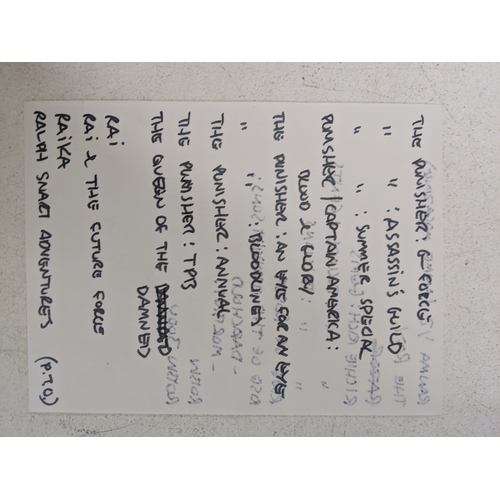 THE PUNISHER: G-FORCE
" " : ASSASSIN'S GUILD
" " : SUMMER SPECIAL
PUNISHER / CAPTAIN AMERICA:
BLOOD & GLORY
THE PUNISHER: AN EYE FOR AN EYE
" " : BLOODLINES
THE PUNISHER: ANNUAL
THE PUNISHER: TPB
THE QUEEN OF THE
DAMNED
RAI
RAI & THE FUTURE FORCE
RAIKA
RALPH SNART ADVENTURES (P.T.O)